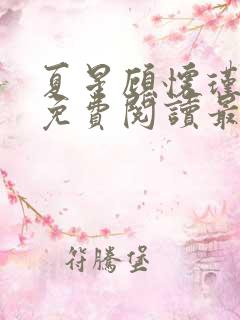 夏星顾怀瑾
免費閱讀最
符騰堡